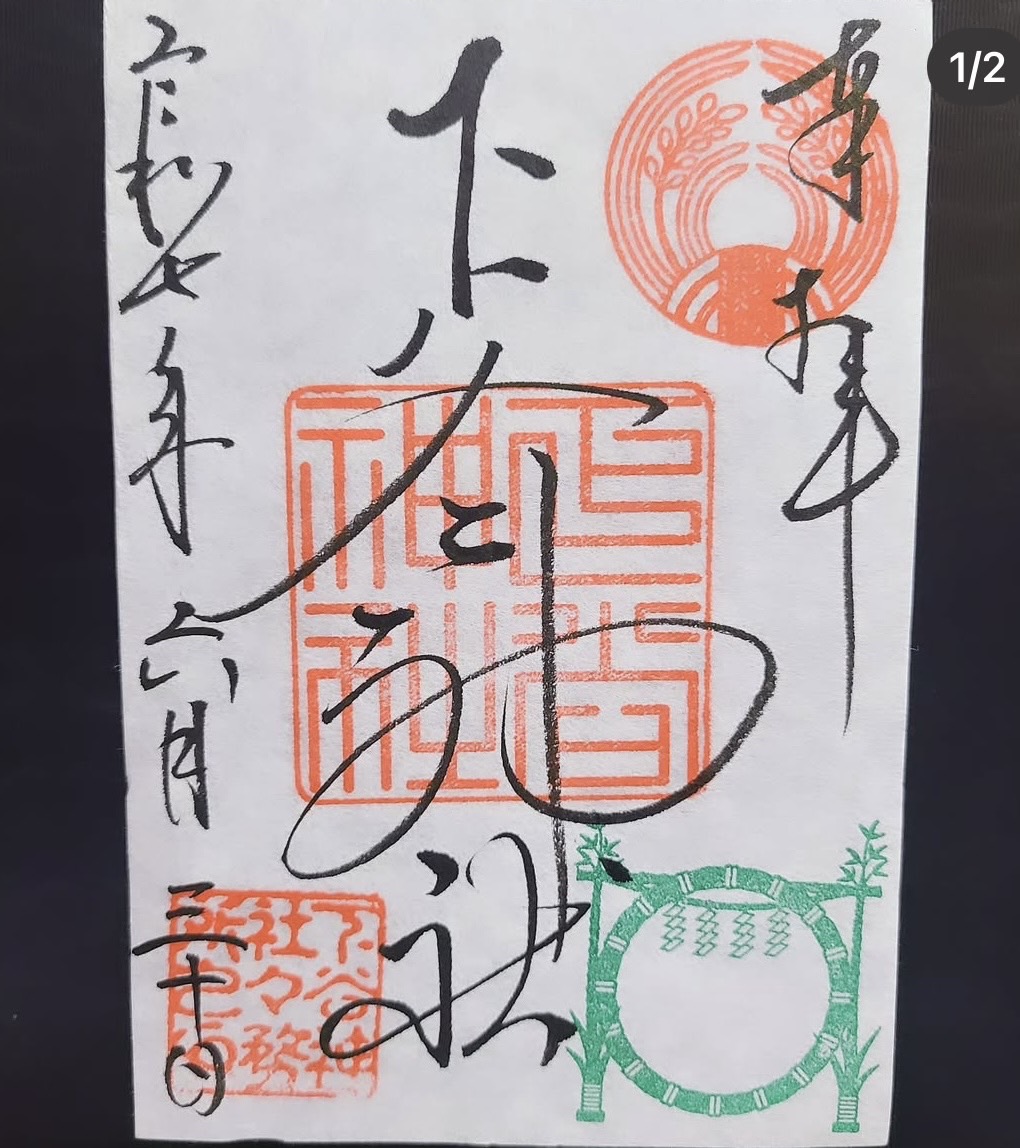 奉拝
下谷神社
令和七年六月三十日
下谷
神社
下谷神
社々務
所之印
1/2